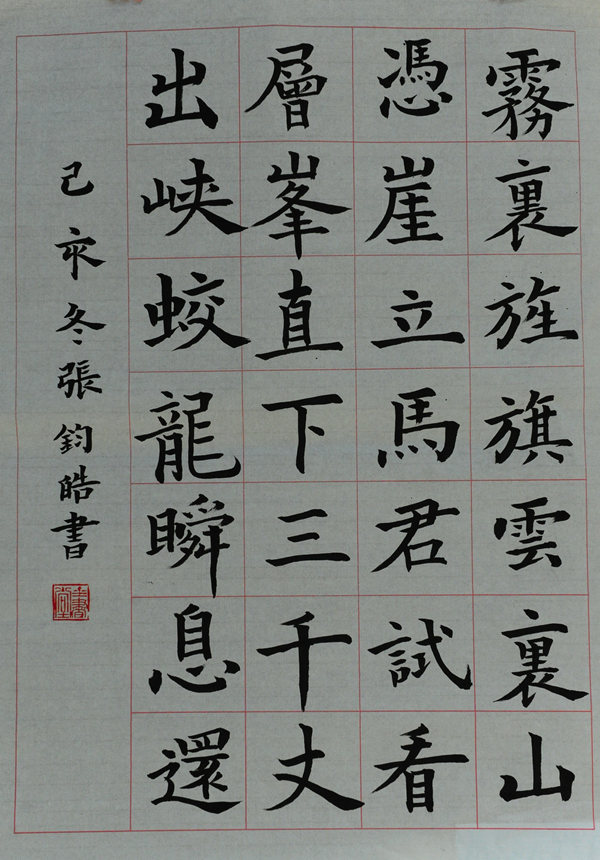 霧裏旌旗雲裏山
憑崖立馬君試看
層峯直下三千丈
出峽蛟龍瞬息還
己亥冬張鈞皓書